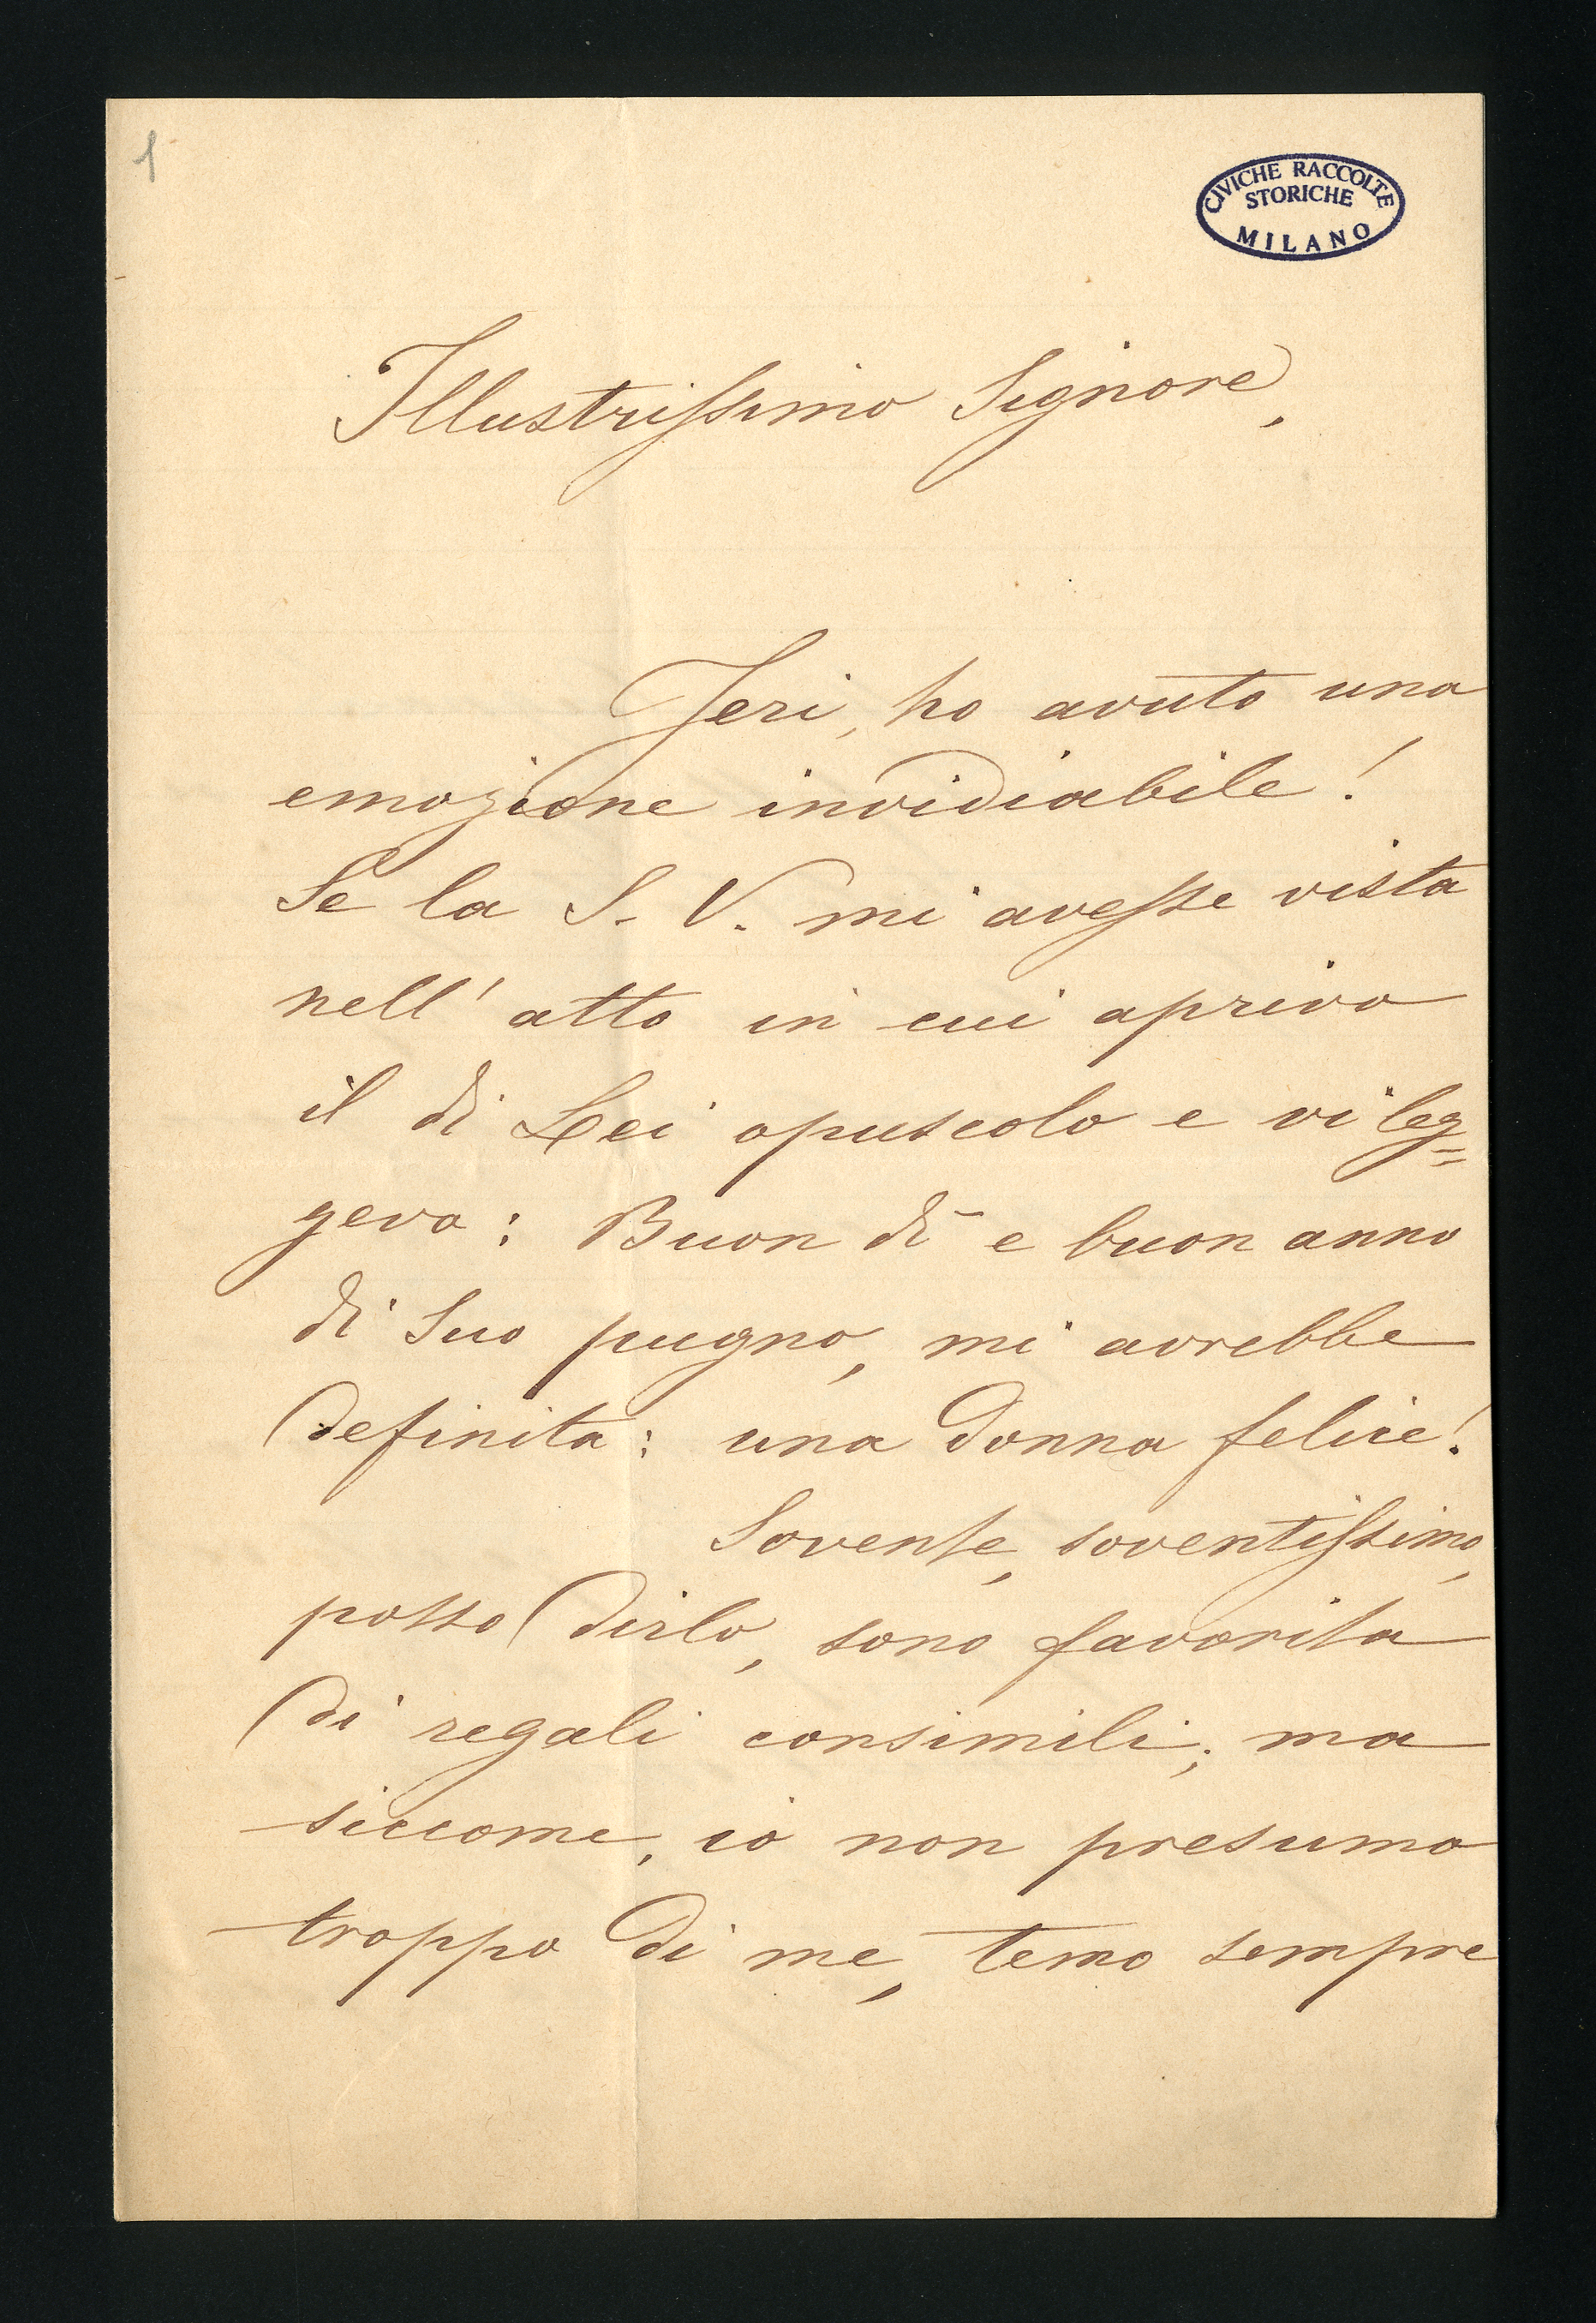 1
CIVICHE RACCOLTE
STORICHE
MILANO
Illustrissimo Signore,
Jeri, ho avuto una
emozione invidiabile!
Se la S. V. mi avesse vista
nell' atto in cui apriva
il di Lei opuscolo e vi leg=
geva: Buon dì e buon anno
di Suo pugno, mi avrebbe
definita: una donna felice!
Sovente, soventissimo,
posso dirlo, sono favorita
di regali consimili; ma
siccome, io non presumo
troppo di me, temo sempre